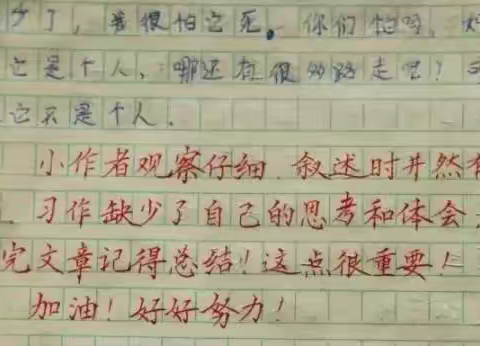 少了，我很怕它死。你们怕吗，
它是个人，哪还有很多路走呢？
它不是个人.
小作者观察仔细 叙述时井然有
习作缺少了自己的思考和体会
完文章记得总结！这点很重要！
加油！好好努力！